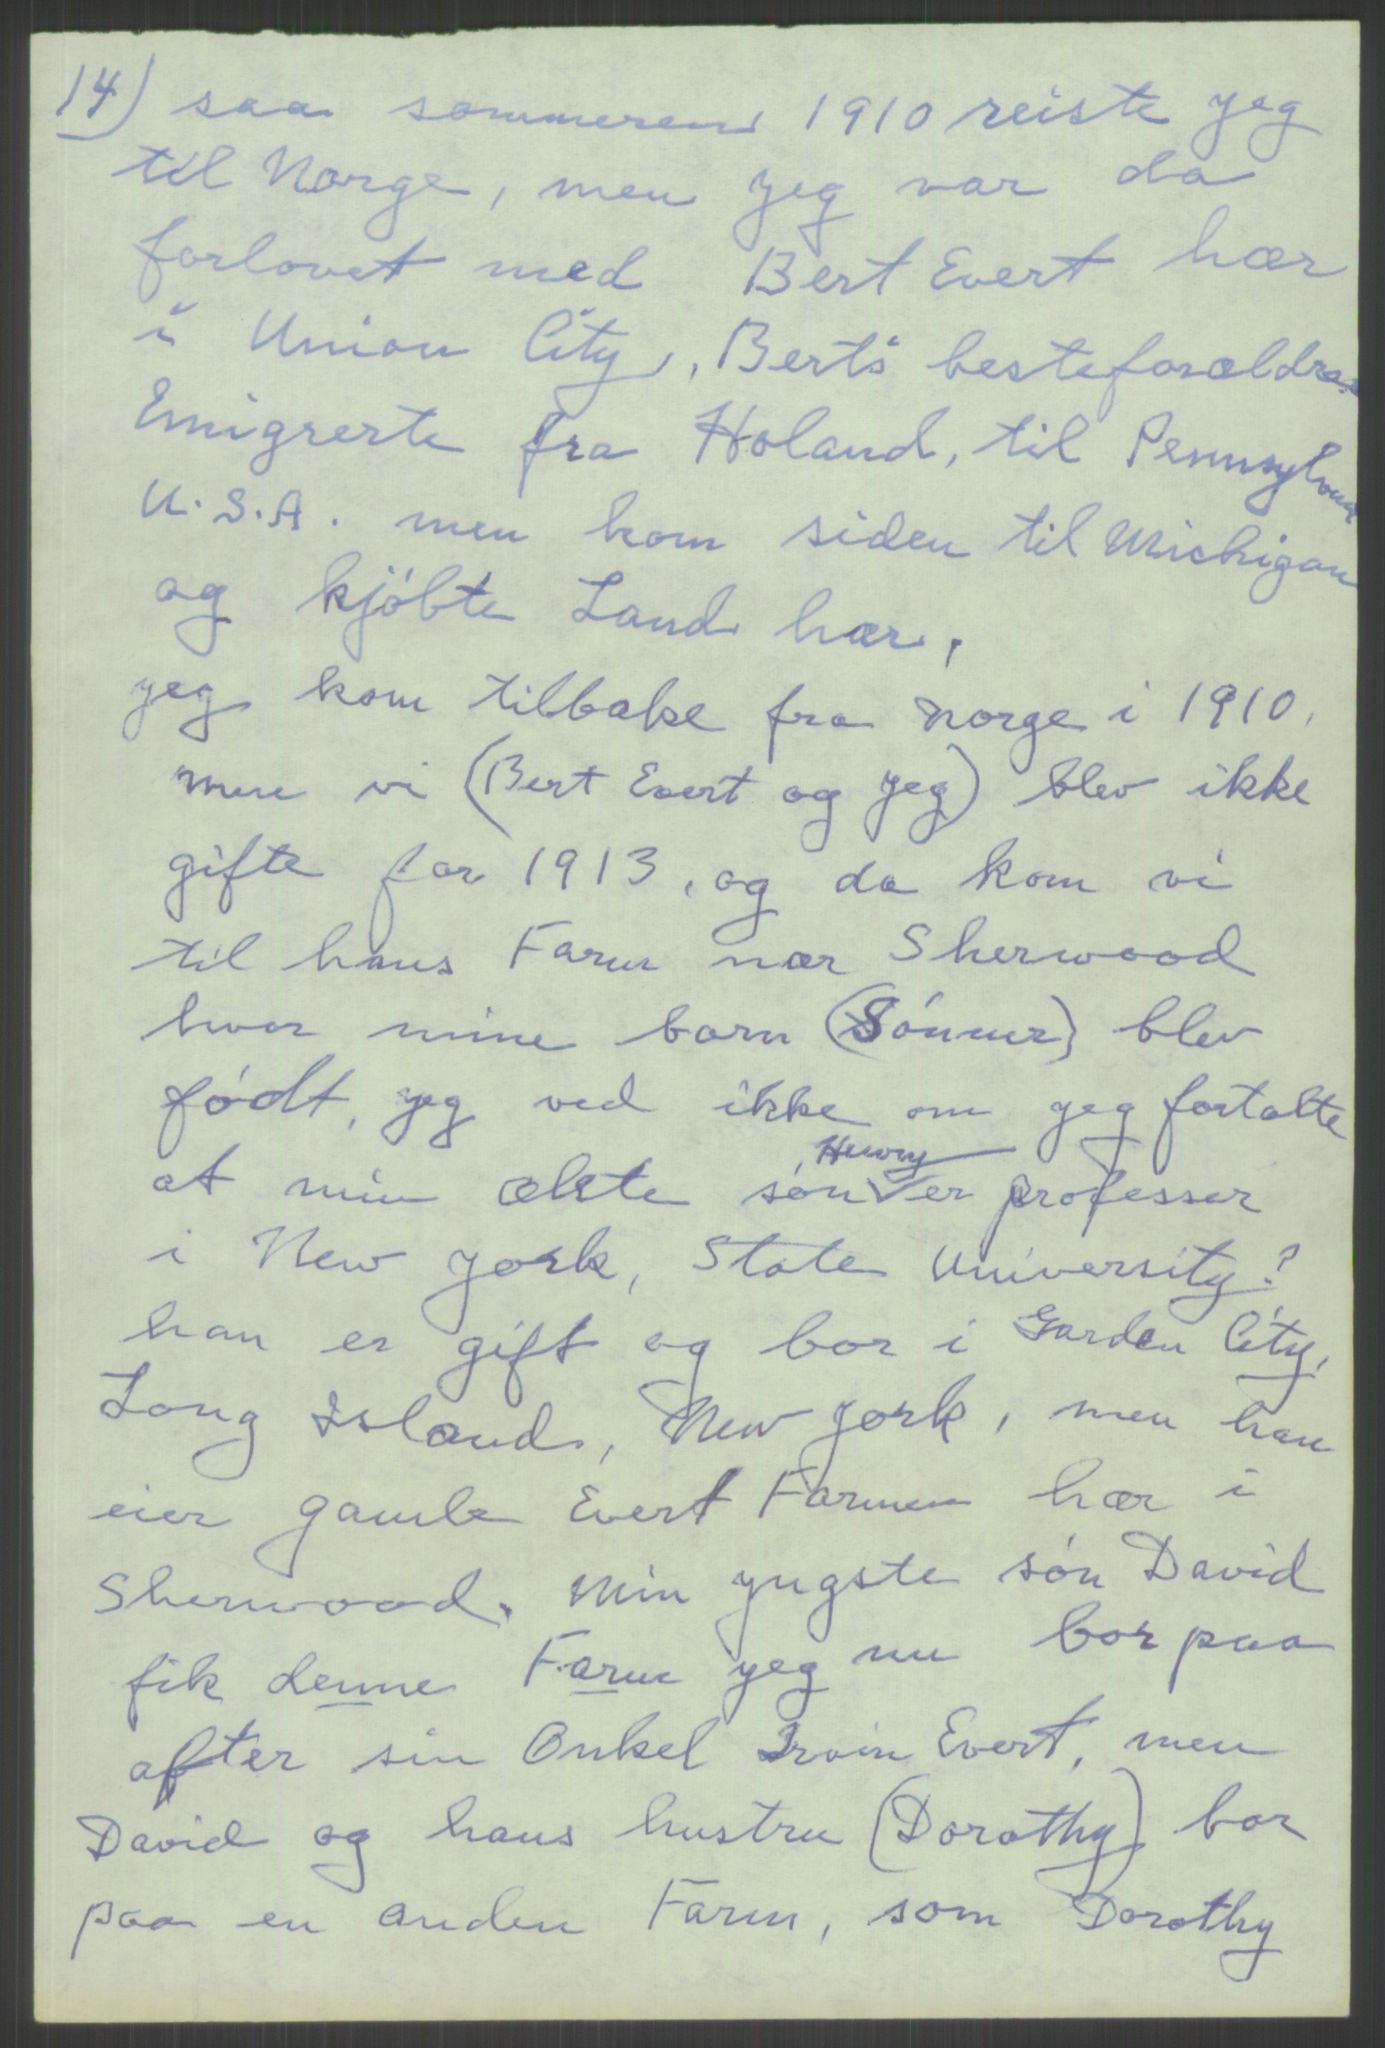 14) saa sommeren 1910 reiste jeg
til Norge, men jeg var da
forlovet med Bert Evert hær
i Union City, Bert's besteforældre
Emigrerte fra Holand, til Pennsylvania
U.S.A. men kom siden til Michigan
og kjóbte Land hær,
jeg kom tilbake fra Norge i 1910,
men vi (Bert Evert og jeg) blev ikke
gifte for 1913, og da kom vi
til hans Farm nær Sherwood
hvor mine barn (Sónner) blev
fódt, jeg ved ikke om jeg fortalte
at min ælste són Henry er professer
i New York, State University?
han er gift og bor i Garden City,
Long Island, New York, men han
eier gamle Evert Farmen hær i
Sherwood. Min yngste són David
fik denne Farm jeg nu bor paa
after sin Onkel Irvin Evert, men
David og hans hustru (Dorothy) bor
paa en anden Farm, som Dorothy